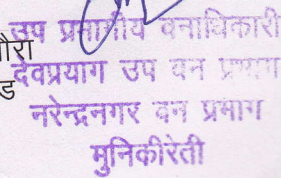 उप प्रभागीय वनाधिकारी
देवप्रयाग उप वन प्रभाग
नरेन्द्रनगर वन प्रभाग
मुनिकीरेती